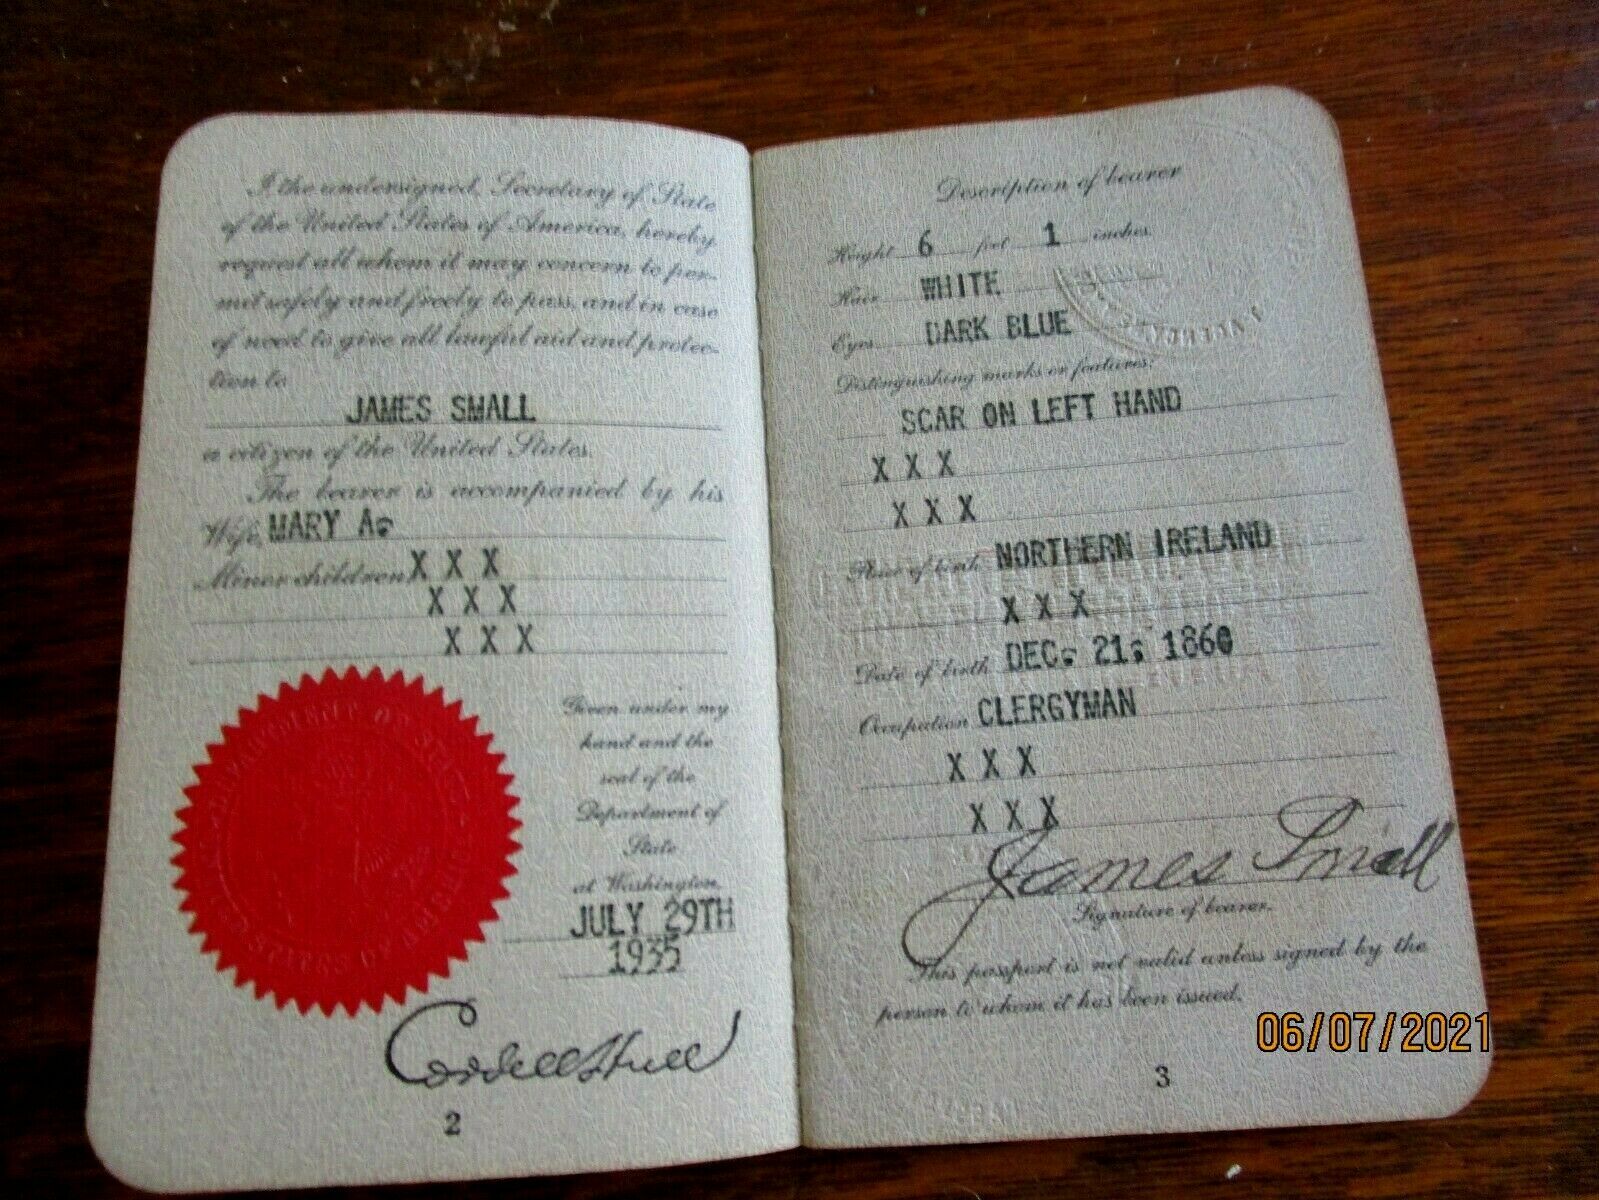 I the undersigned, Secretary of State
of the United States of America, hereby
request all whom it may concern to per-
mit safely and freely to pass, and in case
of need to give all lawful aid and protec-
tion to
JAMES SMALL
a citizen of the United States.
The bearer is accompanied by his
Wife, MARY A.
Minor children X X X
X X X
X X X
DEPARTMENT OF STATE
UNITED STATES OF AMERICA
Given under my
hand and the
seal of the
Department of
State
at Washington,
JULY 29TH
1935
Cordell Hull
2
Description of bearer
Height 6 feet 1 inches.
Hair WHITE
Eyes DARK BLUE
Distinguishing marks or features:
SCAR ON LEFT HAND
X X X
X X X
Place of birth NORTHERN IRELAND
X X X
Date of birth DEC. 21, 1860
Occupation CLERGYMAN
X X X
X X X
James Small
Signature of bearer.
This passport is not valid unless signed by the
person to whom it has been issued.
3
06/07/2021